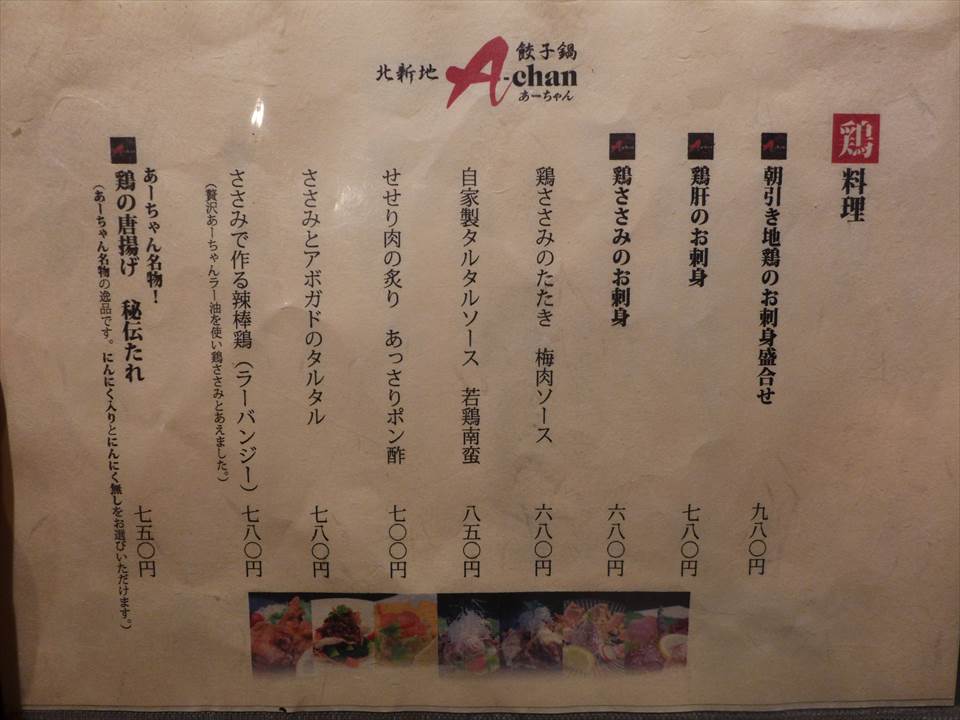 北新地
A-chan
餃子鍋
あーちゃん
鶏料理
朝引き地鶏のお刺身盛合せ 九八〇円
鶏肝のお刺身 七八〇円
鶏ささみのお刺身 六八〇円
鶏ささみのたたき 梅肉ソース 六八〇円
自家製タルタルソース 若鶏南蛮 八五〇円
せせり肉の炙り あっさりポン酢 七〇〇円
ささみとアボガドのタルタル 七八〇円
ささみで作る辣棒鶏(ラーバンジー) 七八〇円
(贅沢あーちゃんラー油を使い鶏ささみとあえました。)
あーちゃん名物!
鶏の唐揚げ 秘伝たれ 七五〇円
(あーちゃん名物の逸品です。にんにく入りとにんにく無しをお選びいただけます。)